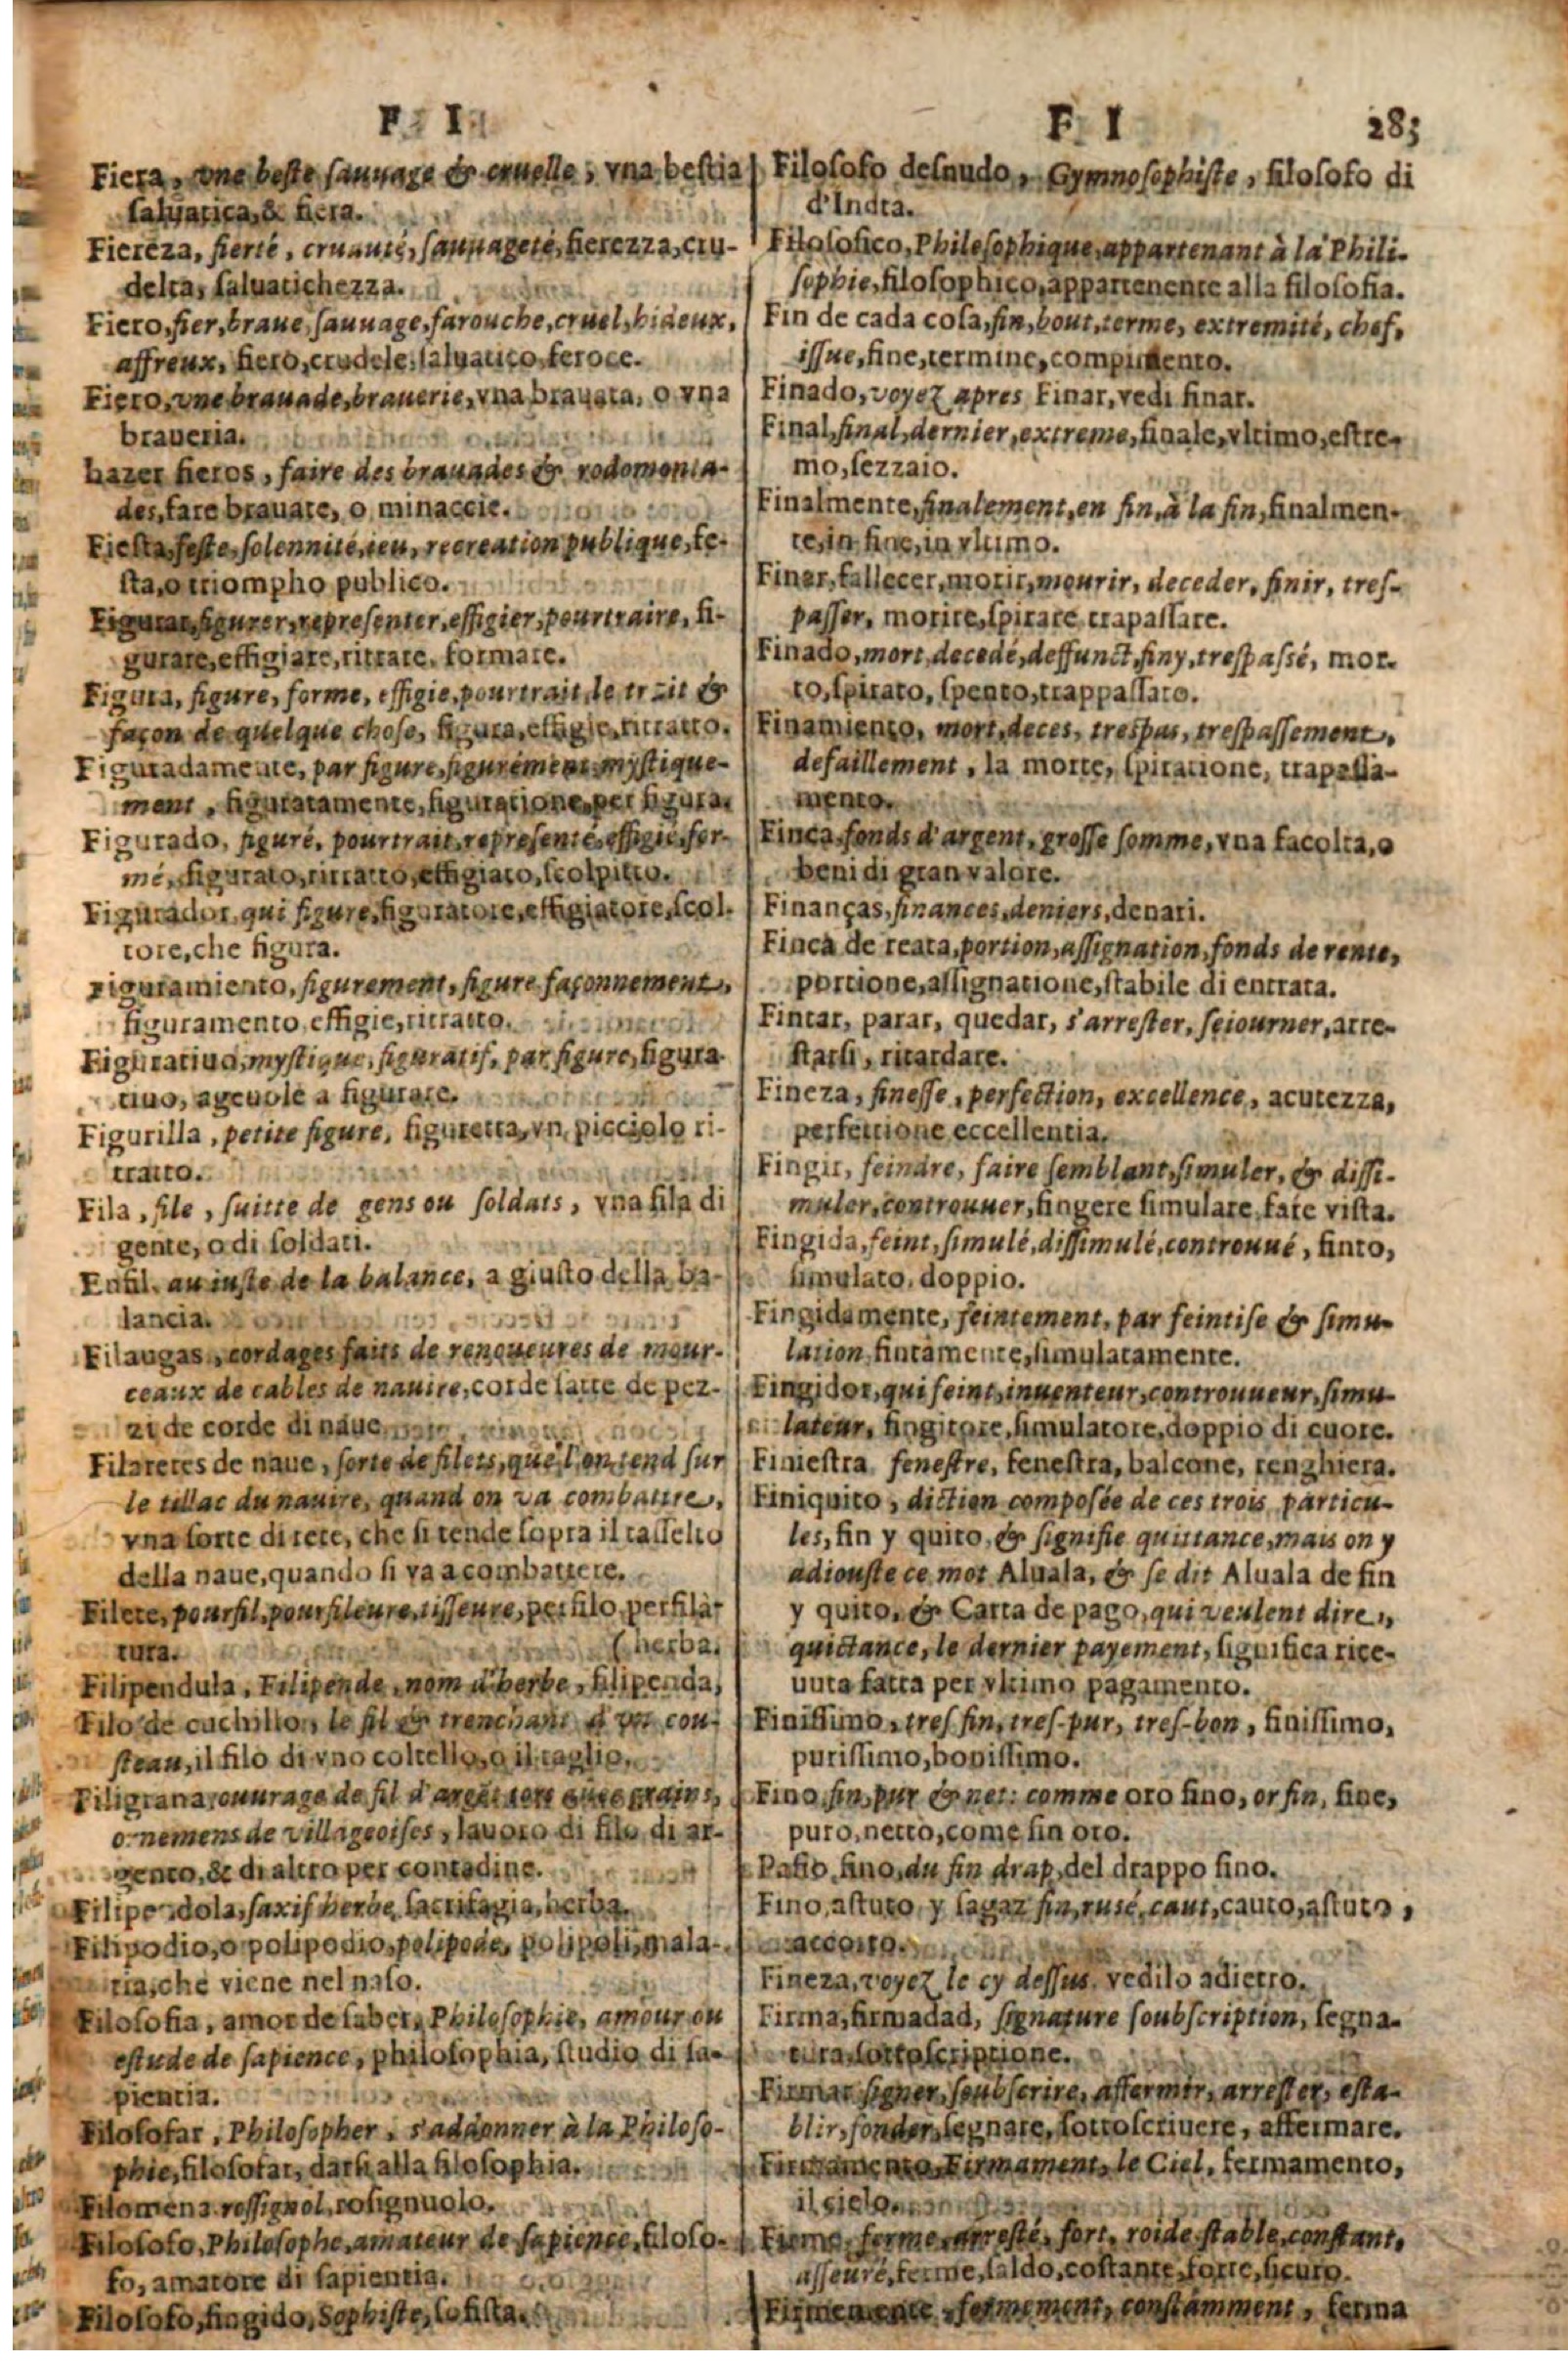 F I
Fiera, vne beste sauuage & cruelle, vna bestia
saluatica, & fiera.
Fiereza, fierté, cruauté, sauuageté, fierezza, cru-
delta, saluatichezza.
Fiero, fier, braue, sauuage, farouche, cruel, hideux,
affreux, fiero, crudele, saluatico, feroce.
Fiero, vne brauade, brauerie, vna brauata, o vna
braueria.
hazer fieros, faire des brauades & rodomonta-
des, fare brauate, o minaccie.
Fiesta, feste, solennité, ieu, recreation publique, fe-
sta, o triompho publico.
Figurar, figurer, representer, effigier, pourtraire, fi-
gurare, effigiare, ritrare, formare.
Figura, figure, forme, effigie, pourtrait, le trait &
façon de quelque chose, figura, effigie, ritratto.
Figuradamente, par figure, figurément, mystique-
ment, figuratamente, figuratione, per figura.
Figurado, figuré, pourtrait, representé, effigié, for-
mé, figurato, ritratto, effigiato, scolpitto.
Figurador, qui figure, figuratore, effigiatore, scol-
tore, che figura.
Figuramiento, figurement, figure façonnement,
figuramento, effigie, ritratto.
Figuratiuo, mystique, figuratif, par figure, figura-
tiuo, ageuole a figurare.
Figurilla, petite figure, figuretta, vn picciolo ri-
tratto.
Fila, file, suitte de gens ou soldats, vna fila di
gente, o di soldati.
Enfil, au iuste de la balance, a giusto della ba-
lancia.
Filaugas, cordages faits de renoueures de mour-
ceaux de cables de nauire, corde fatte de pez-
zi de corde di naue.
Filaretes de naue, sorte de filets, que l'on tend sur
le tillac du nauire, quand on va combattre,
vna sorte di rete, che si tende sopra il tasselto
della naue, quando si va a combattere.
Filete, pourfil, pourfileure, tisseure, perfilo, perfila-
tura. (herba.
Filipendula, Filipende, nom d'herbe, filipenda,
Filo de cuchillo, le fil & trenchant d'vn cou-
steau, il filo di vno coltello, o il taglio.
Filigrana, ouurage de fil d'argēt grains,
ornemens de villageoises, lauoro di filo di ar-
gento, & di altro per contadine.
Filipendola, saxif herbe, sacrifagia, herba.
Filipodio, o polipodio, polipode, polipoli, mala-
tia, che viene nel naso.
Filosofia, amor de saber, Philosophie, amour ou
estude de sapience, philosophia, studio di sa-
pientia.
Filosofar, Philosopher, s'addonner à la Philoso-
phie, filosofar, darsi alla filosophia.
Filomena, rossignol, rosignuolo.
Filosofo, Philosophe, amateur de sapience, filoso-
fo, amatore di sapientia.
Filosofo, fingido, Sophiste, sofista.
F I 285
Filosofo desnudo, Gymnosophiste, filosofo di
d'India.
Filosofico, Philosophique, appartenant à la Phili-
sophie, filosophico, appartenente alla filosofia.
Fin de cada cosa, fin, bout, terme, extremité, chef,
issue, fine, termine, compimento.
Finado, voyez apres Finar, vedi finar.
Final, final, dernier, extreme, finale, vltimo, estre-
mo, sezzaio.
Finalmente, finalement, en fin, à la fin, finalmen-
te, in fine, in vltimo.
Finar, fallecer, morir, mourir, deceder, finir, tres-
passer, morire, spirare trapassare.
Finado, mort, decedé, deffunct, finy, trespassé, mor-
to, spirato, spento, trappassato.
Finamiento, mort, deces, trespas, trespassement,
defaillement, la morte, spiratione, trapassa-
mento.
Finca, fonds d'argent, grosse somme, vna facolta, o
beni di gran valore.
Finanças, finances, deniers, denari.
Finca de reata, portion, assignation, fonds de rente,
portione, assignatione, stabile di entrata.
Fincar, parar, quedar, s'arrester, seiourner, arre-
starsi, ritardare.
Fineza, finesse, perfection, excellence, acutezza,
perfettione eccellentia.
Fingir, feindre, faire semblant, simuler, & dissi-
muler, controuuer, fingere simulare, fare vista.
Fingida, feint, simulé, dissimulé, controuué, finto,
simulato, doppio.
Fingidamente, feintement, par feintise & simu-
lation, fintamente, simulatamente.
Fingidor, qui feint, inuenteur, controuueur, simu-
lateur, fingitore, simulatore, doppio di cuore.
Finiestra fenestre, fenestra, balcone, renghiera.
Finiquito, diction composée de ces trois particu-
les, fin y quito, & signifie quittance, mais on y
adiouste ce mot Aluala, & se dit Aluala de fin
y quito, & Carta de pago, qui veulent dire,
quictance, le dernier payement, significa rice-
uuta fatta per vltimo pagamento.
Finissimo, tres fin, tres-pur, tres-bon, finissimo,
purissimo, bonissimo.
Fino, fin, pur & net: comme oro fino, or fin, fine,
puro, netto, come fin oro.
Paño fino, du fin drap, del drappo fino.
Fino, astuto y sagaz fin, rusé, caut, cauto, astuto,
accorto.
Fineza, voyez le cy dessus. vedilo adietro.
Firma, firmadad, signature soubscription, segna-
tura, sottoscriptione.
Firmar signer, soubscrire, affermir, arrester, esta-
blir, fonder, segnare, sottoscriuere, affermare.
Firmamento, Firmament, le Ciel, fermamento,
il cielo.
Firme, ferme, arresté, fort, roide stable, constant,
asseuré, ferme, saldo, costante, forte, sicuro.
Firmemente, fermement, constamment, ferma